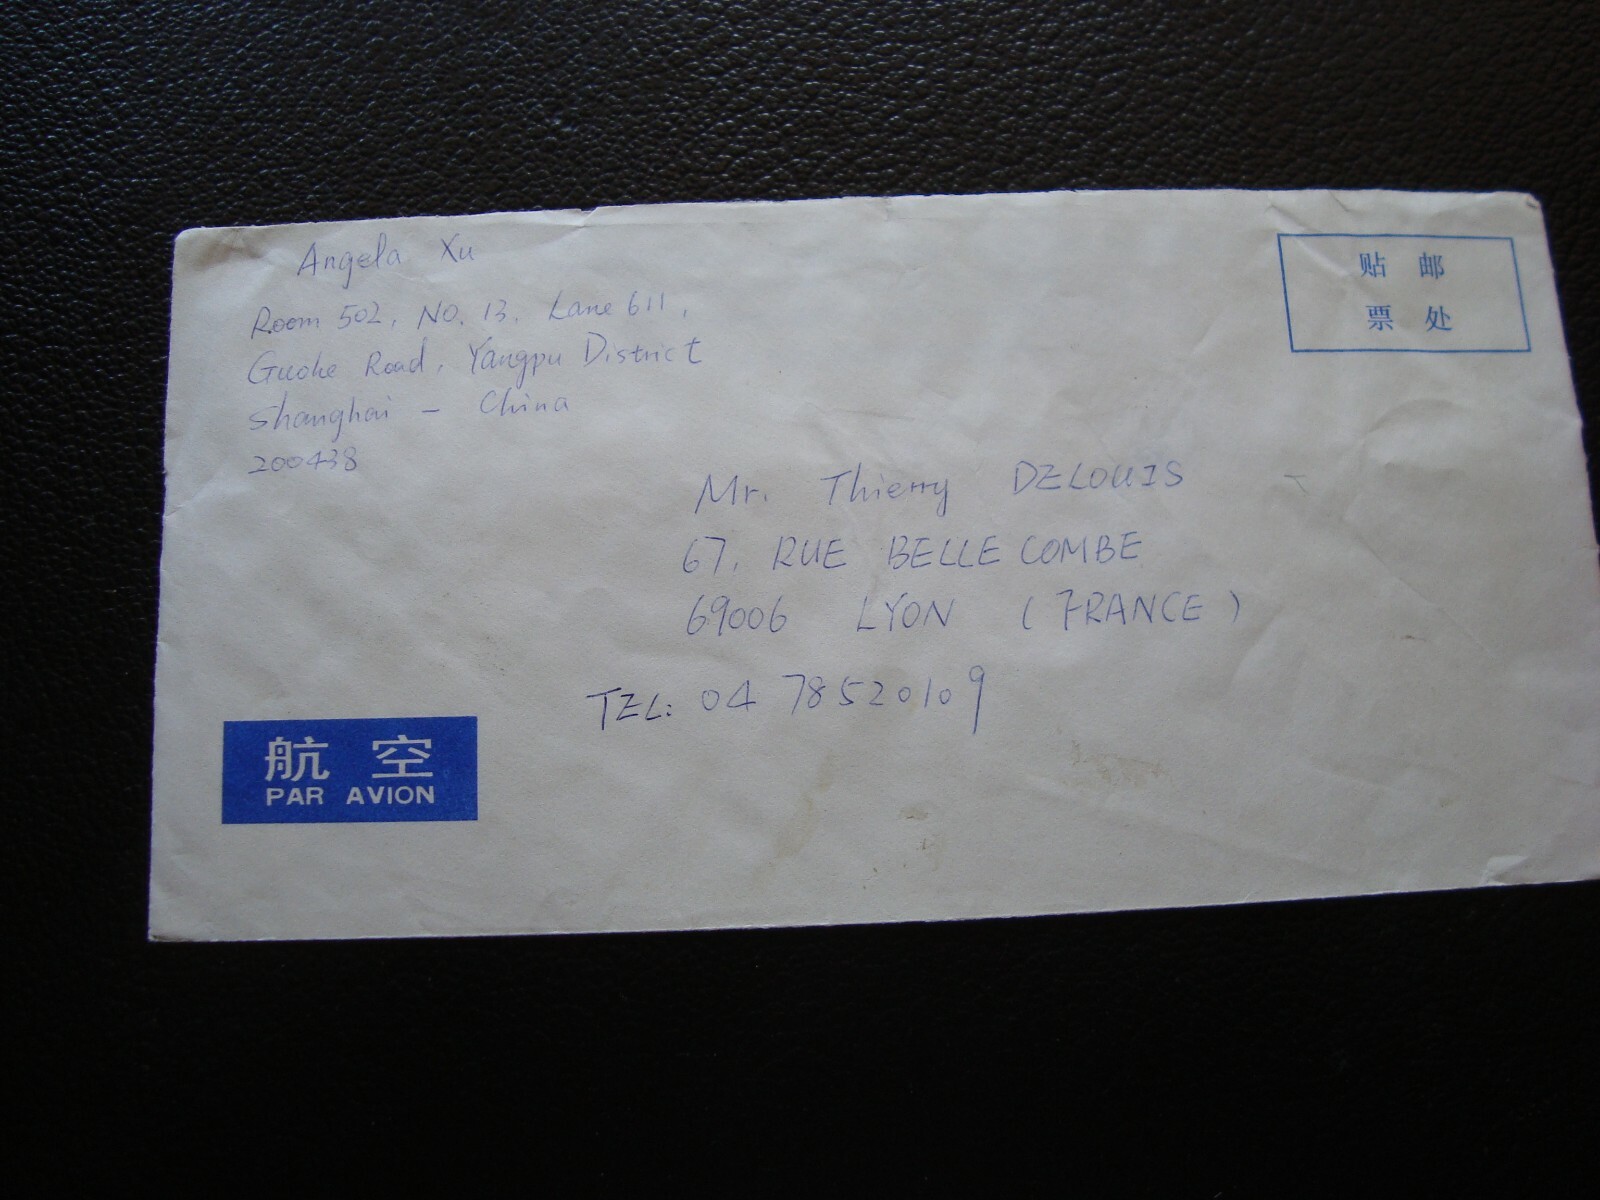 Angela Xu
Room 502, NO. 13. Lane 611,
Guohe Road, Yangpu District
Shanghai - China
200438
贴 邮
票 处
Mr. Thierry DELOUIS
67, RUE BELLECOMBE
69006 LYON (FRANCE)
TEL: 04 78520109
航 空
PAR AVION